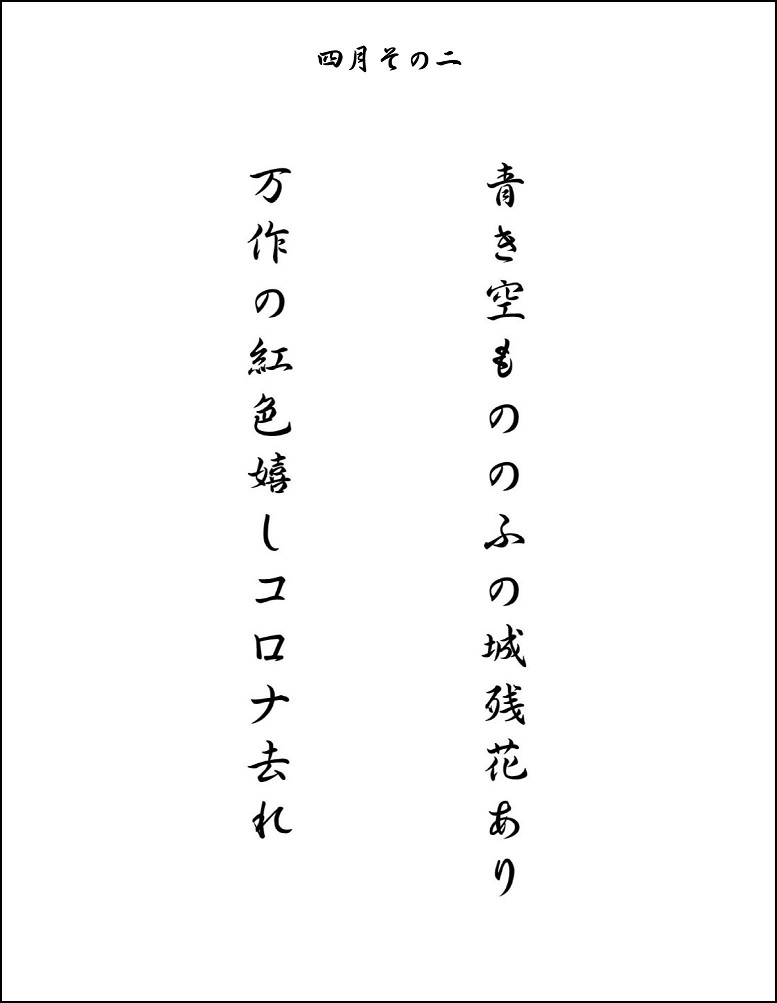 四月その二
青き空もののふの城残花あり
万作の紅色嬉しコロナ去れ